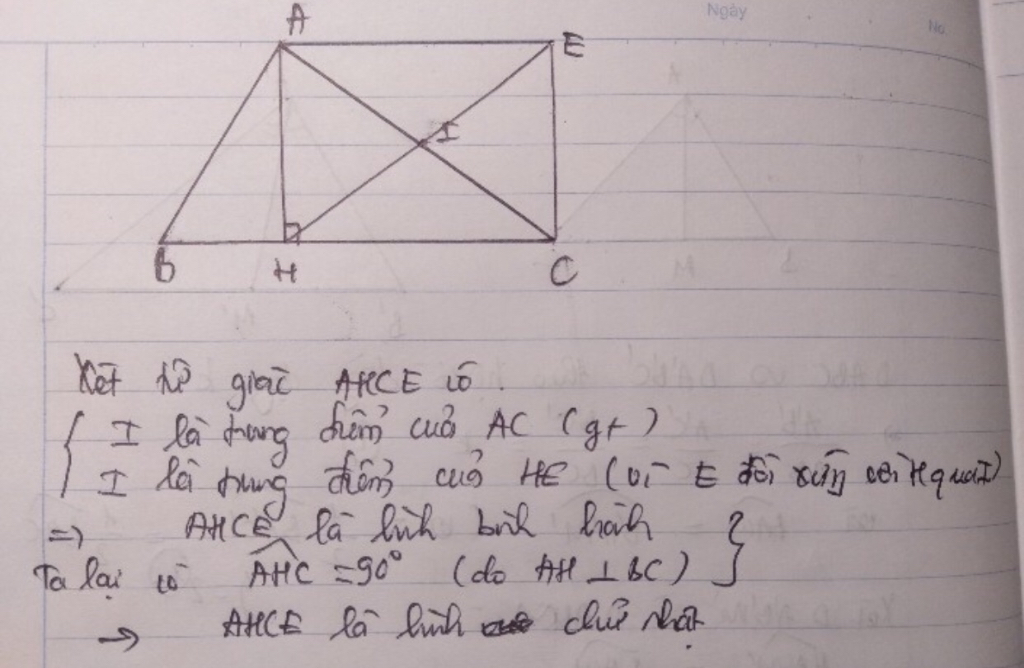 Ngày
No.
A
E
I
B
H
C
A
M
Xét tứ giác AHCE có.
I là trung điểm của AC (gt)
I là trung điểm của HE (vì E đối xứng với H qua I)
=> AHCE là hình bình hành
Ta lại có AHC = 90° (do AH ⊥ BC)
→ AHCE là hình chữ nhật